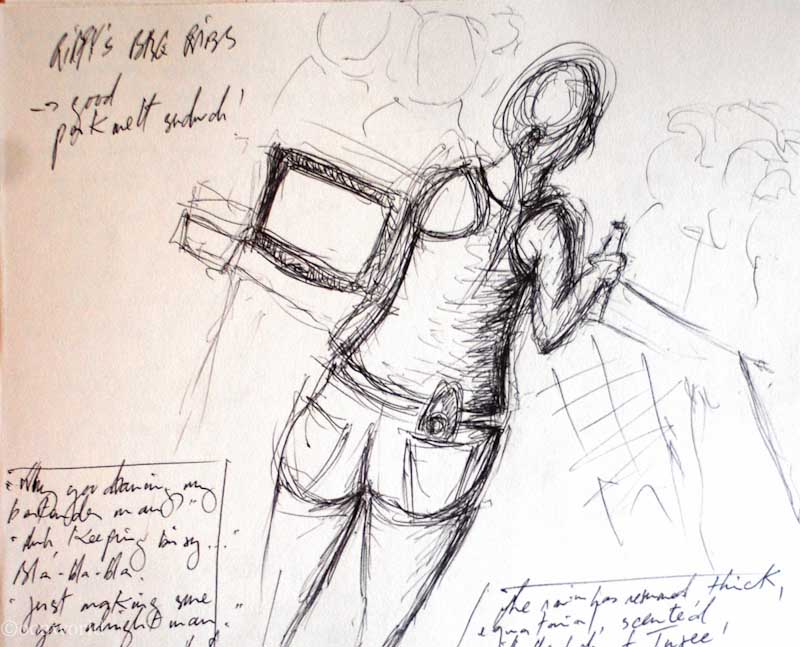 RIPPY'S BBQ RIBS
→ good
pork melt sndwch!
"Why you drawing my
bartender man?"
"Auh, Keeping busy..."
Bla-bla-bla.
"Just making sure
you alright man."
The rain has resumed thick,
equatorial, scented